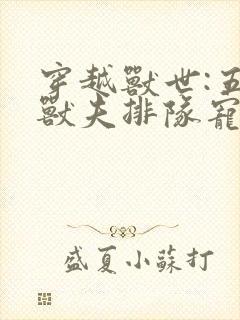 穿越獸世:五
獸夫排隊寵
盛夏小蘇打